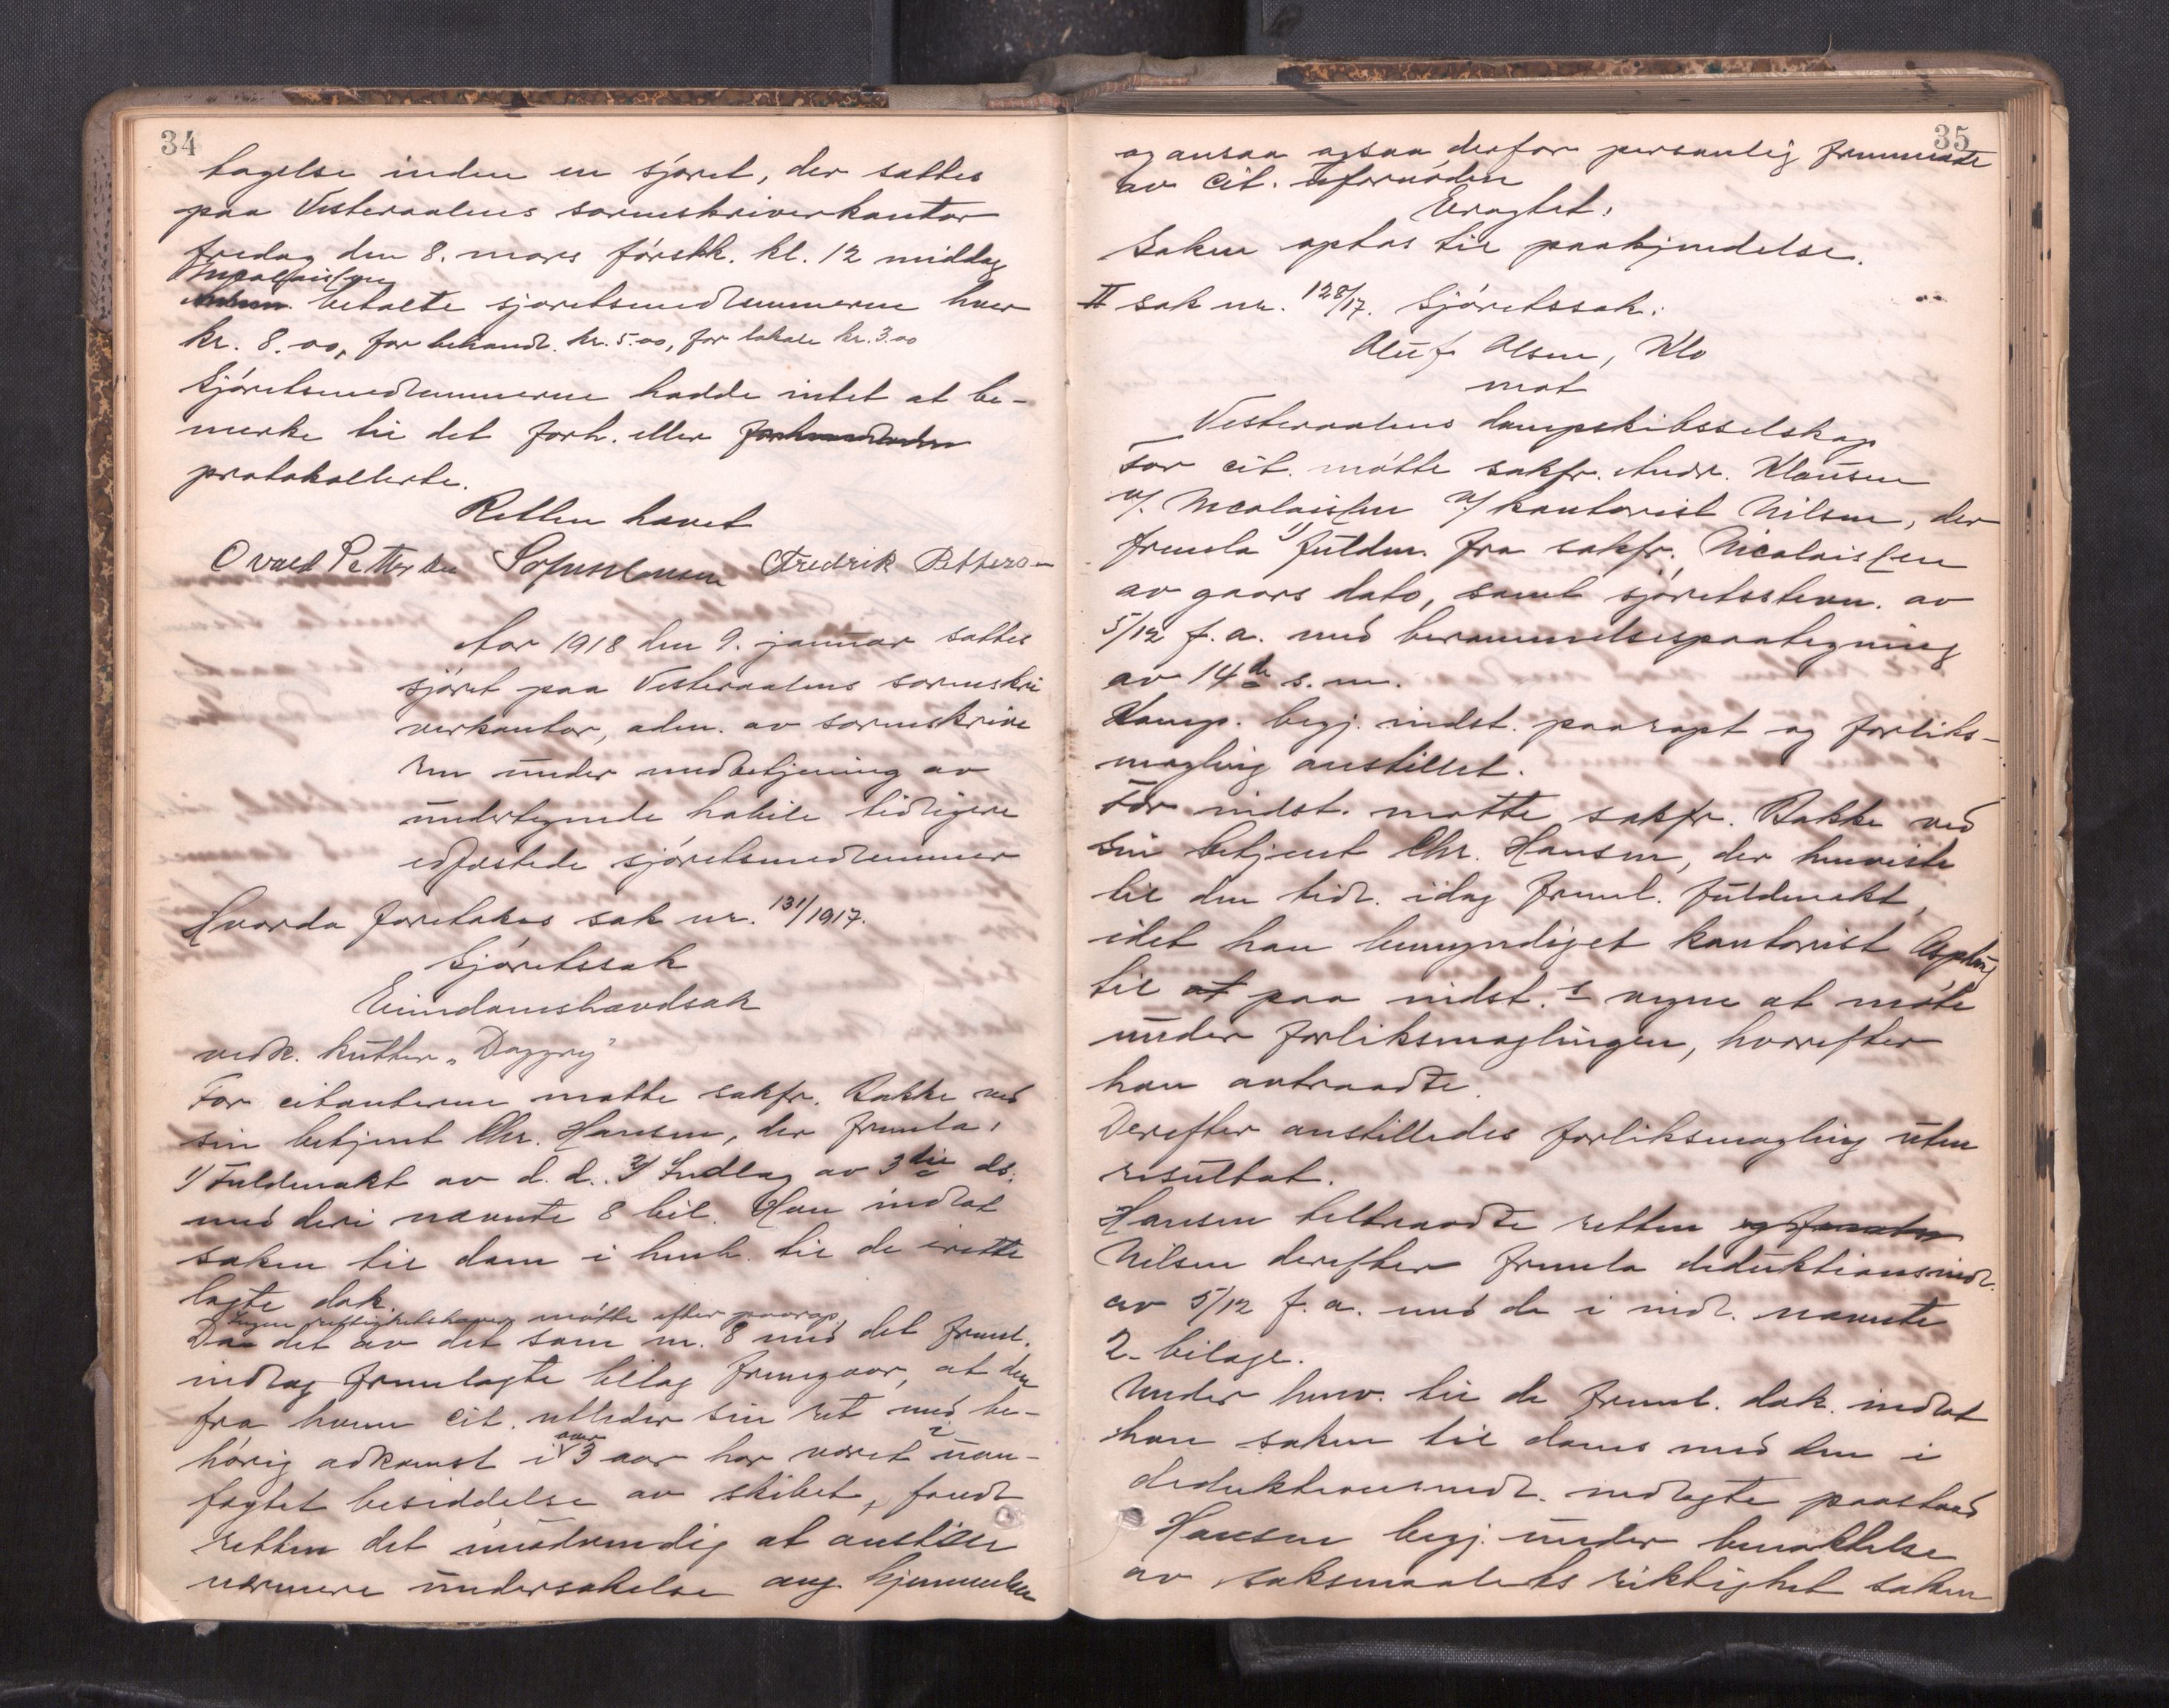 34
tagelse inden en sjøret, der sattes
paa Vesteraalens sorenskriverkontor
fredag den 8. mars førstk. kl. 12 middag
Nicolaissen
betalte sjøretsmedlemmerne hver
kr. 8.00, for behandl. kr. 5.00, for lokale kr. 3.00
Sjøretsmedlemmerne hadde intet at be-
merke til det forh. eller
protokollerte.
Retten hævet
Ovald Pettersen Fredrik Petterson
Aar 1918 den 9. januar sattes
sjøret paa Vesteraalens sorenskri
verkontor, adm. av sorenskrive
ren under medbetjening av
undertegnede habile tidligere
edfæstede sjøretsmedlemmer
Hvorda foretokes sak nr. 131/1917.
Sjøretssak
Eiendomshævdsak
vedk. kutter „Daggry"
For citanterne møtte sakfr. Bakke ved
sin betjent Chr. Hansen, der fremla:
1/ Fuldmakt av d. d. 2/ Indlæg av 3die ds.
med deri nævnte 8 bil. Han indlot
saken til dom i henh. til de irette
lagte dok.
Ingen rettighetshaver møtte efter paarop.
Da det av det som nr. 8 med det freml.
indlæg fremlagte bilag fremgaar, at den
fra hvem cit. utleder sin ret med be-
hørig adkomst i over 3 aar har været i uan-
fægtet besiddelse av skibet, fandt
retten det unødvendig at anstille
nærmere undersøkelse ang. hjemmelen
35
og ansaa ogsaa derfor personlig fremmøte
av cit. ufornøden
Eragtet:
Saken optas til paakjendelse.
II sak nr. 128/17. Sjøretssak:
Oluf Olsen, Klo
mot
Vesteraalens dampskibsselskap
For cit. møtte sakfr. Andr. Klausen
v/ Nicolaissen v/ kontorist Nilsen, der
fremla 1/ fuldm. fra sakfr. Nicolaissen
av gaars dato, samt sjøretsstevn. av
5/12 f. a. med berammelsespaategning
av 14de s. m.
Komp. begj. indst. paaropt og forliks-
mægling anstillet.
For indst. møtte sakfr. Bakke ved
sin betjent Chr. Hansen, der henviste
til den tidl. idag freml. fuldmakt,
idet han bemyndiget kontorist
til at paa indst.s vegne at møte
under forliksmæglingen, hvorefter
han avtraadte.
Derefter anstilledes forliksmægling uten
resultat.
Hansen tiltraadte retten
Nilsen derefter fremla deduktionsindl.
av 5/12 f. a. med de i indl. nævnte
2 bilage.
Under henv. til de freml. dok. indlot
han saken til doms med den i
deduktionsindl. nedlagte paastand
Hansen begj. under benektelse
av søksmaalets riktighet saken